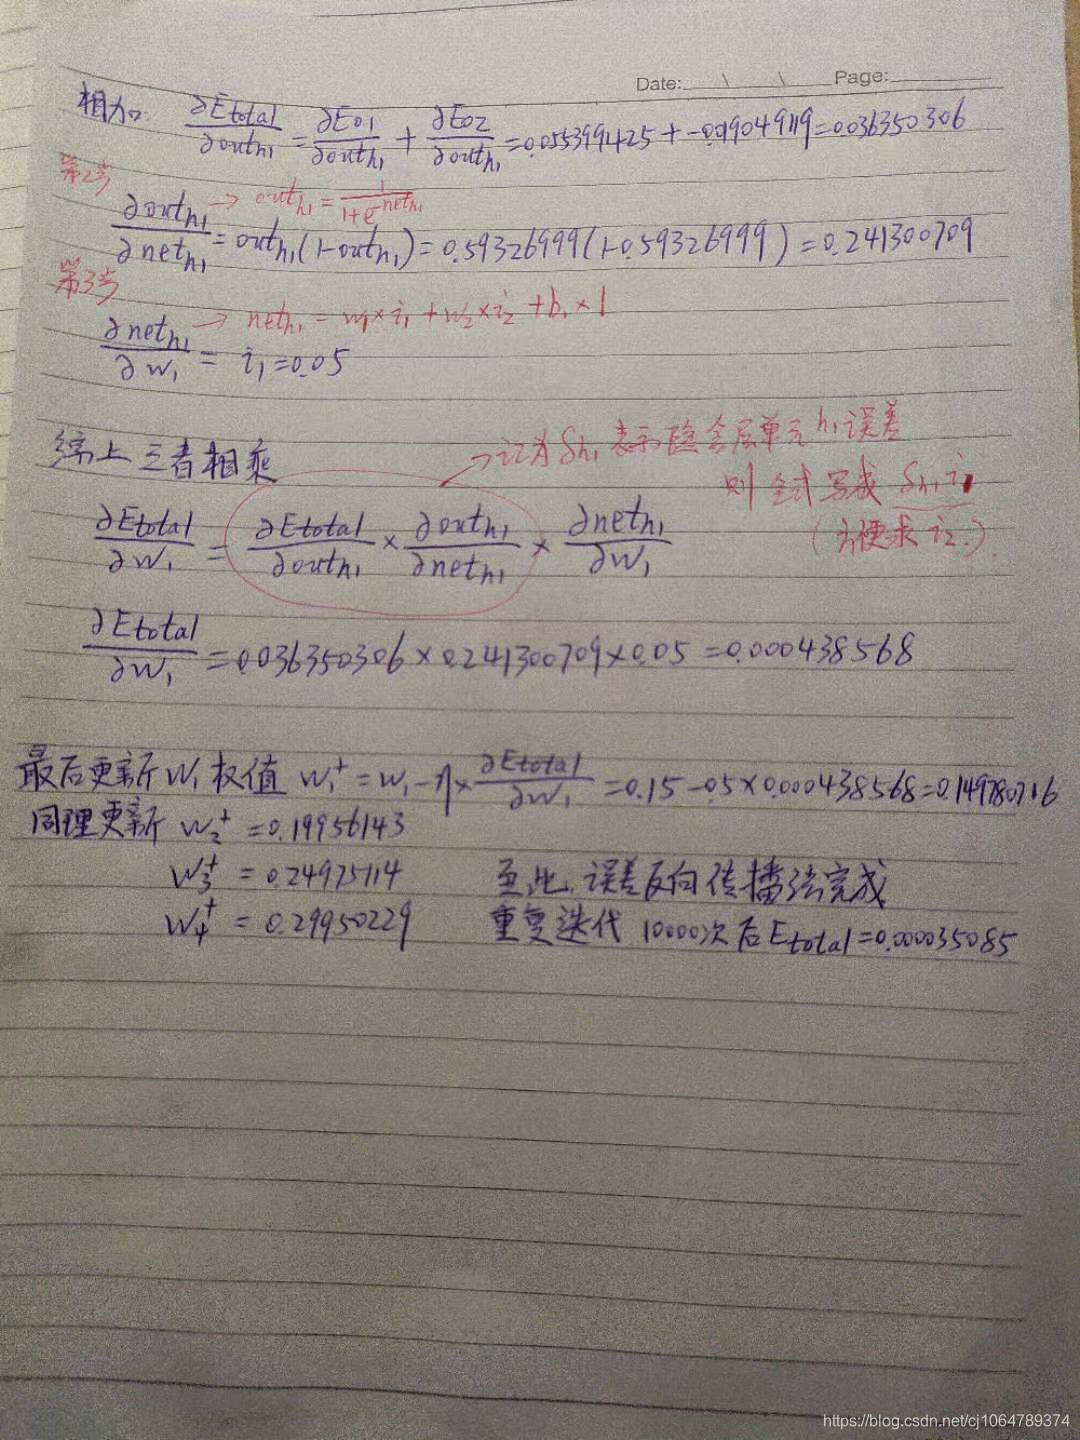 Date: \ \ Page:
相加: ∂Etotal/∂outh1 = ∂Eo1/∂outh1 + ∂Eo2/∂outh1 = 0.055399425 + -0.019049119 = 0.036350306
第2步
→ outh1 = 1/(1+e^-neth1)
∂outh1/∂neth1 = outh1(1-outh1) = 0.59326999(1-0.59326999) = 0.241300709
第3步
→ neth1 = w1×i1 + w2×i2 + b1×1
∂neth1/∂w1 = i1 = 0.05
综上三者相乘
→记为 δh1 表示隐含层单元 h1 误差
则 全式 写成 δh1 i1
(方便求 i2.)
∂Etotal/∂w1 = ∂Etotal/∂outh1 × ∂outh1/∂neth1 × ∂neth1/∂w1
∂Etotal/∂w1 = 0.036350306 × 0.241300709 × 0.05 = 0.000438568
最后更新 w1 权值 w1+ = w1 - η × ∂Etotal/∂w1 = 0.15 - 0.5 × 0.000438568 = 0.149780716
同理更新 w2+ = 0.19956143
w3+ = 0.24975114 至此, 误差反向传播法完成
w4+ = 0.29950229 重复迭代 10000次后 Etotal = 0.000035085
https://blog.csdn.net/cj1064789374